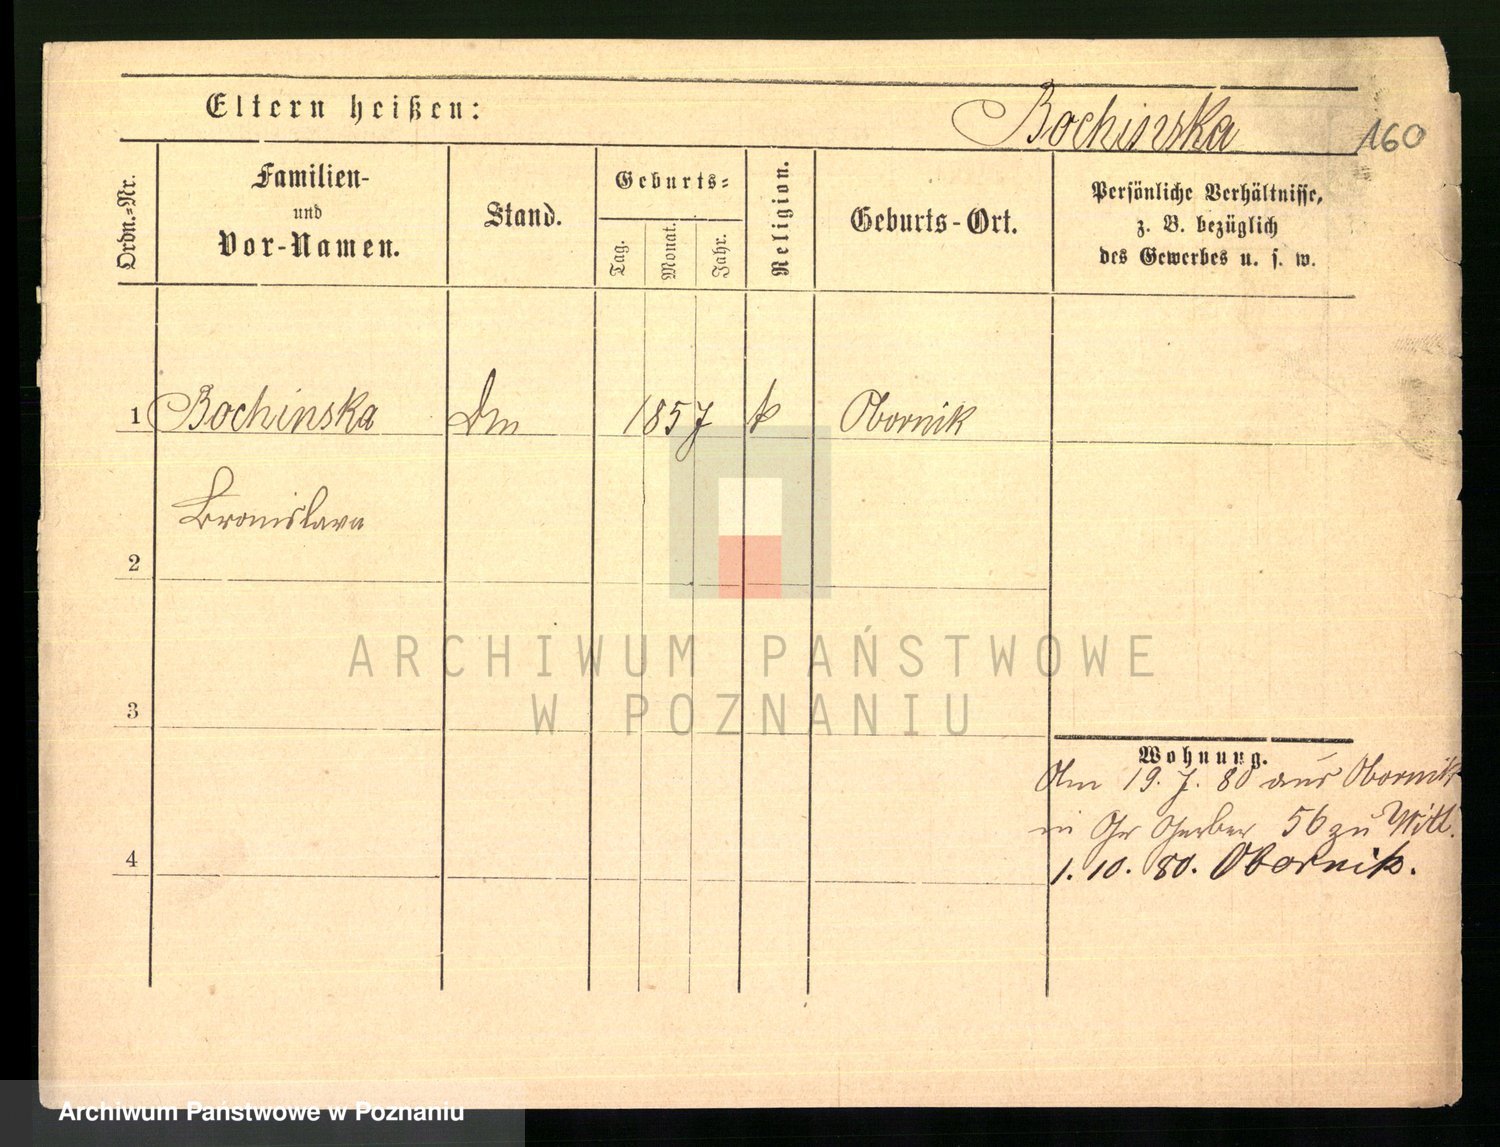 Eltern heißen:
Bochinska
160
Ordn.=Nr.
Familien-
und
Vor-Namen.
Stand.
Geburts=
Tag.
Monat.
Jahr.
Religion.
Geburts-Ort.
Persönliche Verhältnisse,
z. B. bezüglich
des Gewerbes u. s. w.
1 Bochinska 1857 k Obornik
Bronislava
2
ARCHIWUM PAŃSTWOWE
W POZNANIU
3
Wohnung.
19. 7. 80 aus Obornik
in Gr Gerber 56 zu Witt.
4
1. 10. 80. Obornik.
Archiwum Państwowe w Poznaniu